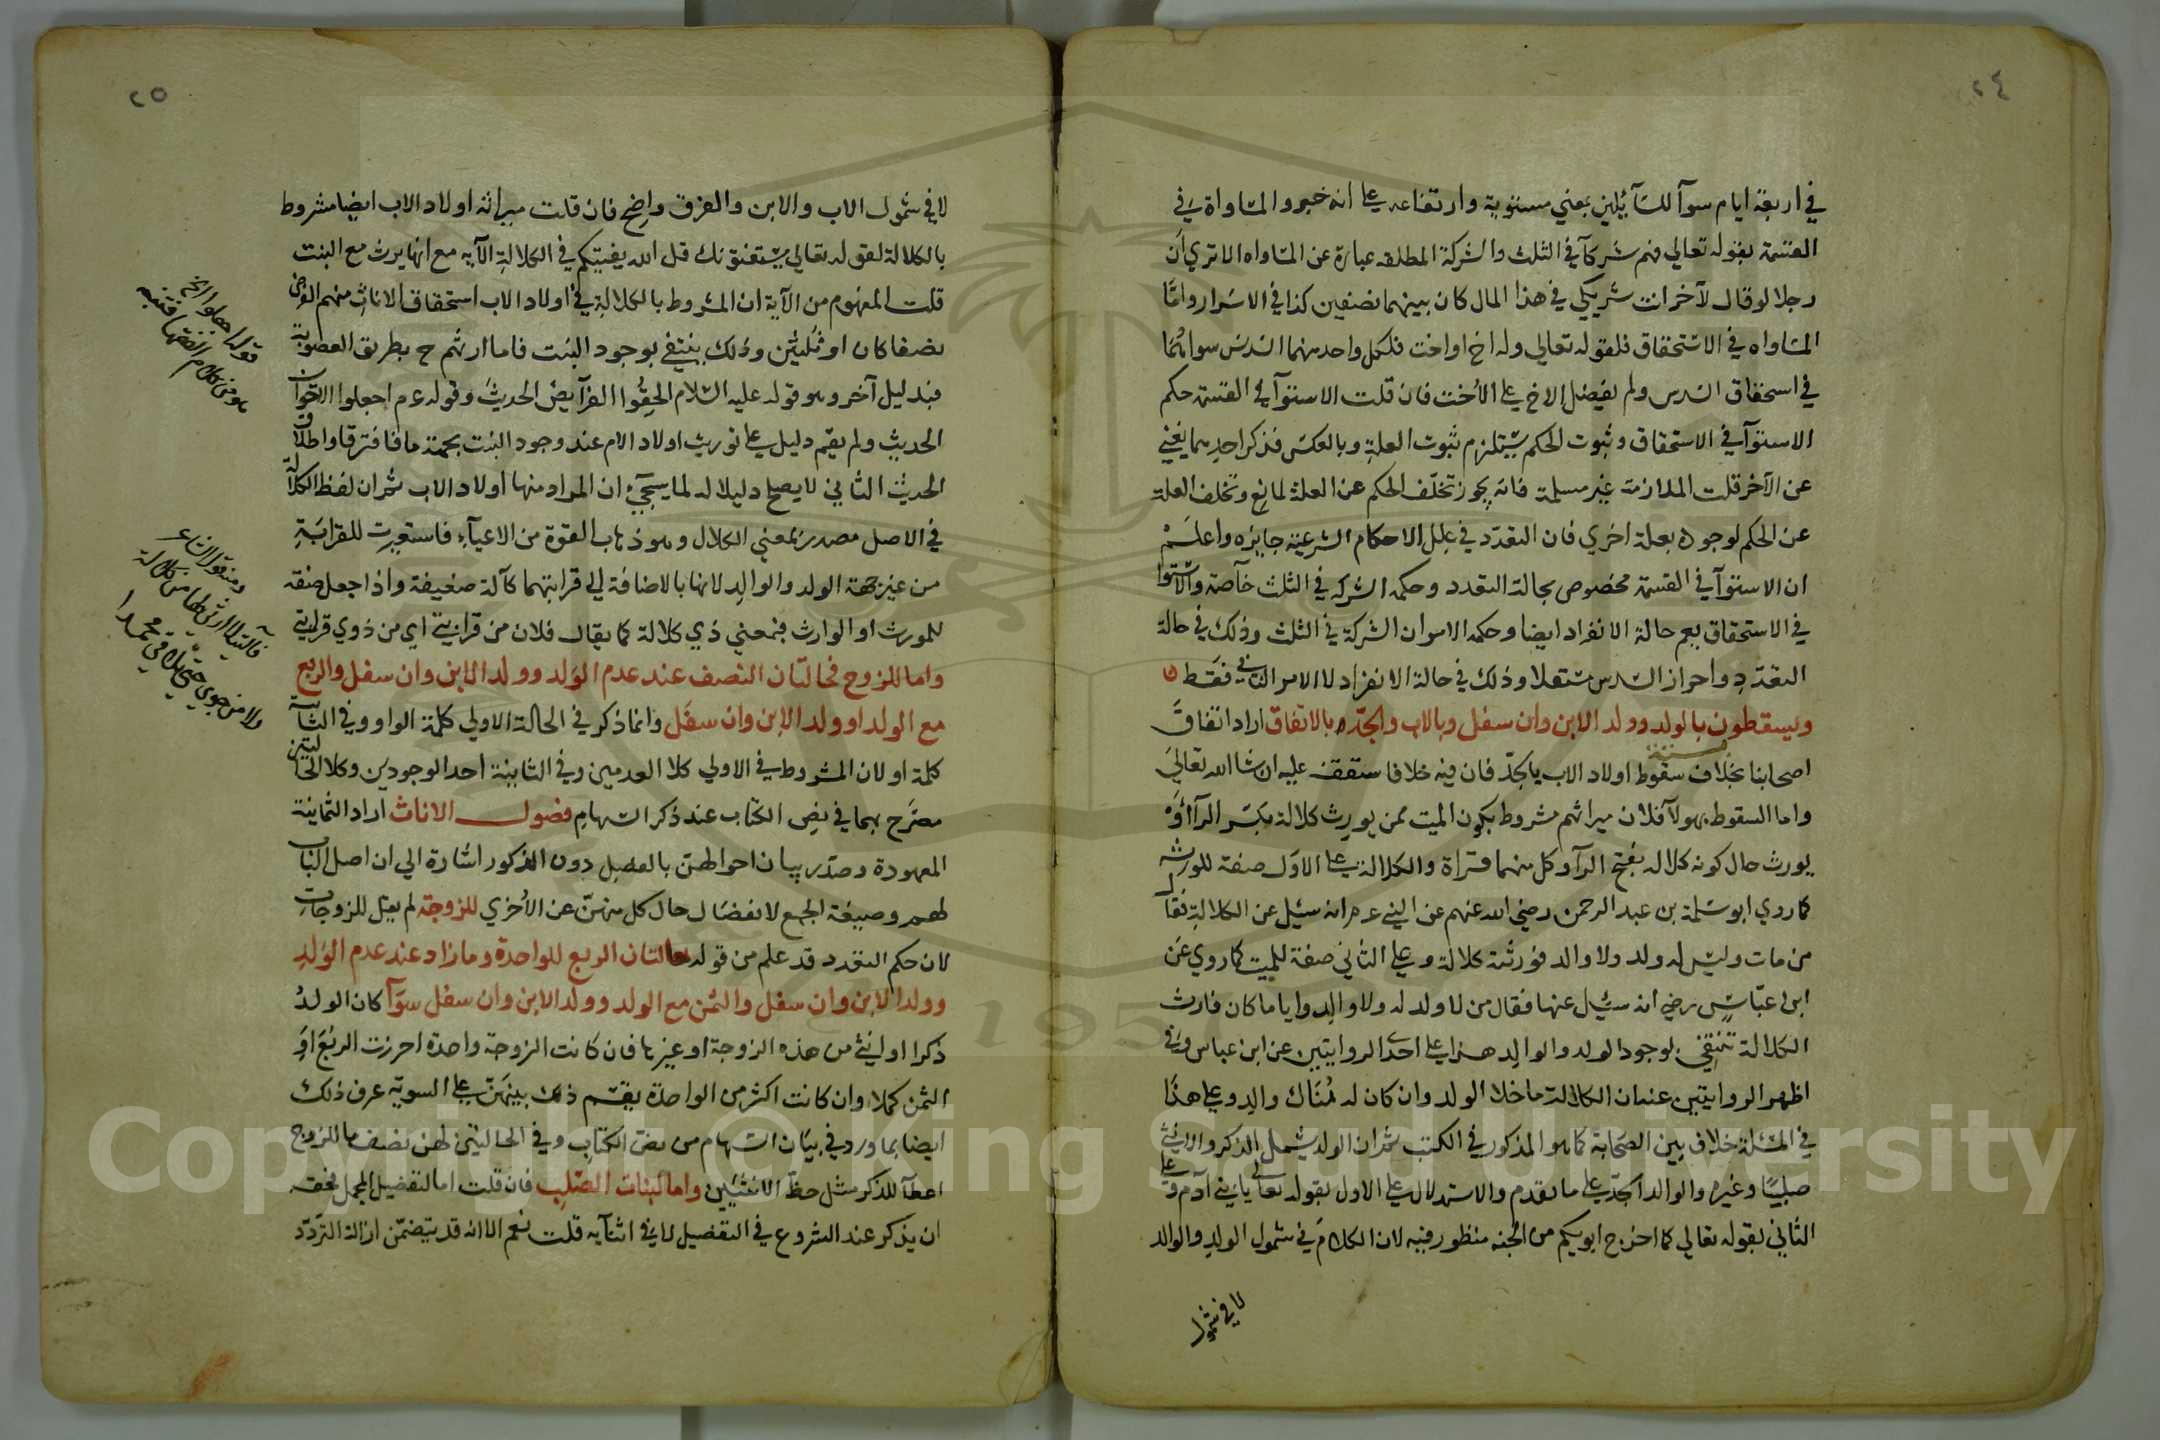 ٢٤
في اربعة ايام سوآ للسآئلين بمعني مستوية وارتفاعه علي انه خبر والمساواة في
القسمة بقوله تعالي فهم شركآ في الثلث والشركة المطلقه عبارة عن المساواه الا تري ان
رجلا لو قال لآخر انت شريكي في هذا المال كان بينهما نصفين كذا في الاسرار واما
المساواه في الاستحقاق فلقوله تعالي وله اخ او اخت فلكل واحد منهما السدس سوا بينهما
في استحقاق السدس ولم يفضل الاخ علي الأخت فان قلت الاستوآ في القسمة حكم
الاستوآ في الاستحقاق وثبوت الحكم يستلزم ثبوت العلة وبالعكس فذكر احدهما يغني
عن الآخر قلت الملازمة غير مسلمة فانه يجوز تخلف الحكم عن العلة لمانع وتخلف العلة
عن الحكم لوجوده بعلة اخري فان التعدد في علل الاحكام الشرعية جايزه واعلم
ان الاستوآ في القسمة مخصوص بحالة التعدد وحكمه الشركه في الثلث خآصة والاستوا
في الاستحقاق يعم حالة الانفراد ايضا وحكمه الامران الشركة في الثلث وذلك في حالة
التعدد واحراز السدس مستقلا وذلك في حالة الانفراد لا الامر الثاني فقط
ويسقطون بالولد وولد الابن وان سفل وبالاب والجد بالاتفاق اراد اتفاق
اصحابنا بخلاف سقوط اولاد الاب بالجد فان فيه خلافا ستقف عليه ان شا الله تعالي
واما السقوط بهولآ فلان ميراثهم مشروط بكون الميت ممن يورث كلالة بكسر الرآ او
يورث حال كونه كلاله بفتح الرآ وكل منهما قراة والكلالة علي الاول صفة للورثة
كما روي ابو سلمة بن عبد الرحمن رضي الله عنهم عن النبي عم انه سئل عن الكلالة فقال
من مات وليس له ولد ولا والد فورثته كلالة وعلي الثاني صفة للميت كما روي عن
ابن عباس رضي انه سئل عنها فقال من لا ولد له ولا والد وايا ما كان فارث
الكلالة تنتفي بوجود الولد والوالد هذا علي احدي الروايتين عن ابن عباس وفي
اظهر الروايتين عنه ان الكلالة ما خلا الولد وان كان له هناك والد وعلي هذا
في المسئلة خلاف بين الصحابة كما هو المذكور في الكتب ثم ان الولد يشمل الذكر والانثي
صلبيا وغيره والوالد الجد علي ما تقدم والاستدلال علي الاول بقوله تعالي يا بني آدم وعلي
الثاني بقوله تعالي كما اخرج ابويكم من الجنه منظور فيه لان الكلام في شمول الولد والوالد
لا في شمول
٢٥
لا في شمول الاب والابن والفرق واضح فان قلت ميراثه اولاد الاب ايضا مشروط
بالكلالة لقوله تعالي يستفتونك قل الله يفتيكم في الكلالة الآيه مع انها يرث مع البنت
قلت المفهوم من الآية ان المشروط بالكلالة في اولاد الاب استحقاق الاناث منهم الفرض
نصفا كان او ثلثين وذلك ينتفي بوجود البنت فاما ارثهم ح بطريق العصوبة
فبدليل آخر وهو قوله عليه السلام الحقوا الفرآيض الحديث وقوله عم اجعلوا الاخوات
الحديث ولم يقم دليل علي توريث اولاد الام عند وجود البنت بجهة ما فافترقا واطلاق
الحديث الثاني لا يصلح دليلا له لما سيجيء ان المراد منها اولاد الاب ثم ان لفظ الكلالة
في الاصل مصدر بمعني الكلال وهو ذهاب القوة من الاعيآء فاستعيرت للقرابة
من غير جهة الولد والوالد لانها بالاضافة الي قرابتهما كآلة ضعيفة واذا جعل صفة
للمورث او الوارث فبمعني ذي كلالة كما يقال فلان من قرابتي اي من ذوي قرابتي
واما للزوج فحالتان النصف عند عدم الولد وولد الابن وان سفل والربع
مع الولد او ولد الابن وان سفل وانما ذكر في الحالة الاولي كلمة الواو وفي الثانية
كلمة او لان المشروط في الاولي كلا العدمين وفي الثانية احد الوجودين وكلا الحالتين
مصرح بهما في نص الكتاب عند ذكر السهام فصول الاناث اراد الثمانية
المعهودة وصدر بيان احوالهن بالفصل دون الذكور اشارة الي ان اصل الباب
لهم وصيغة الجمع لانفصال حال كل منهن عن الأخري للزوجة لم يقل للزوجات
لان حكم التعدد قد علم من قوله حالتان الربع للواحدة وما زاد عند عدم الولد
وولد الابن وان سفل والثمن مع الولد وولد الابن وان سفل سوآ كان الولد
ذكرا او انثي من هذه الزوجة او غيرها فان كانت الزوجة واحدة احرزت الربع او
الثمن كملا وان كانت اكثر من الواحدة يقسم ذلك بينهن علي السويه عرف ذلك
ايضا بما ورد في بيان السهام من نص الكتاب وفي الحالتين لهن نصف ما للزوج
اعطآ للذكر مثل حظ الانثيين واما لبنات الصلب فان قلت اما لتفصيل المجمل فحقه
ان يذكر عند الشروع في التفصيل لا في اثنآيه قلت نعم الا انه قد يتضمن ازالة التردد
قوله اجعلوا الخ
هو من كلام الفقها فتنبه
ومنه قول الشاعر
فآليت لا ارثي لها من كلالة
ولا من وجي حتي تلاقي محمدا